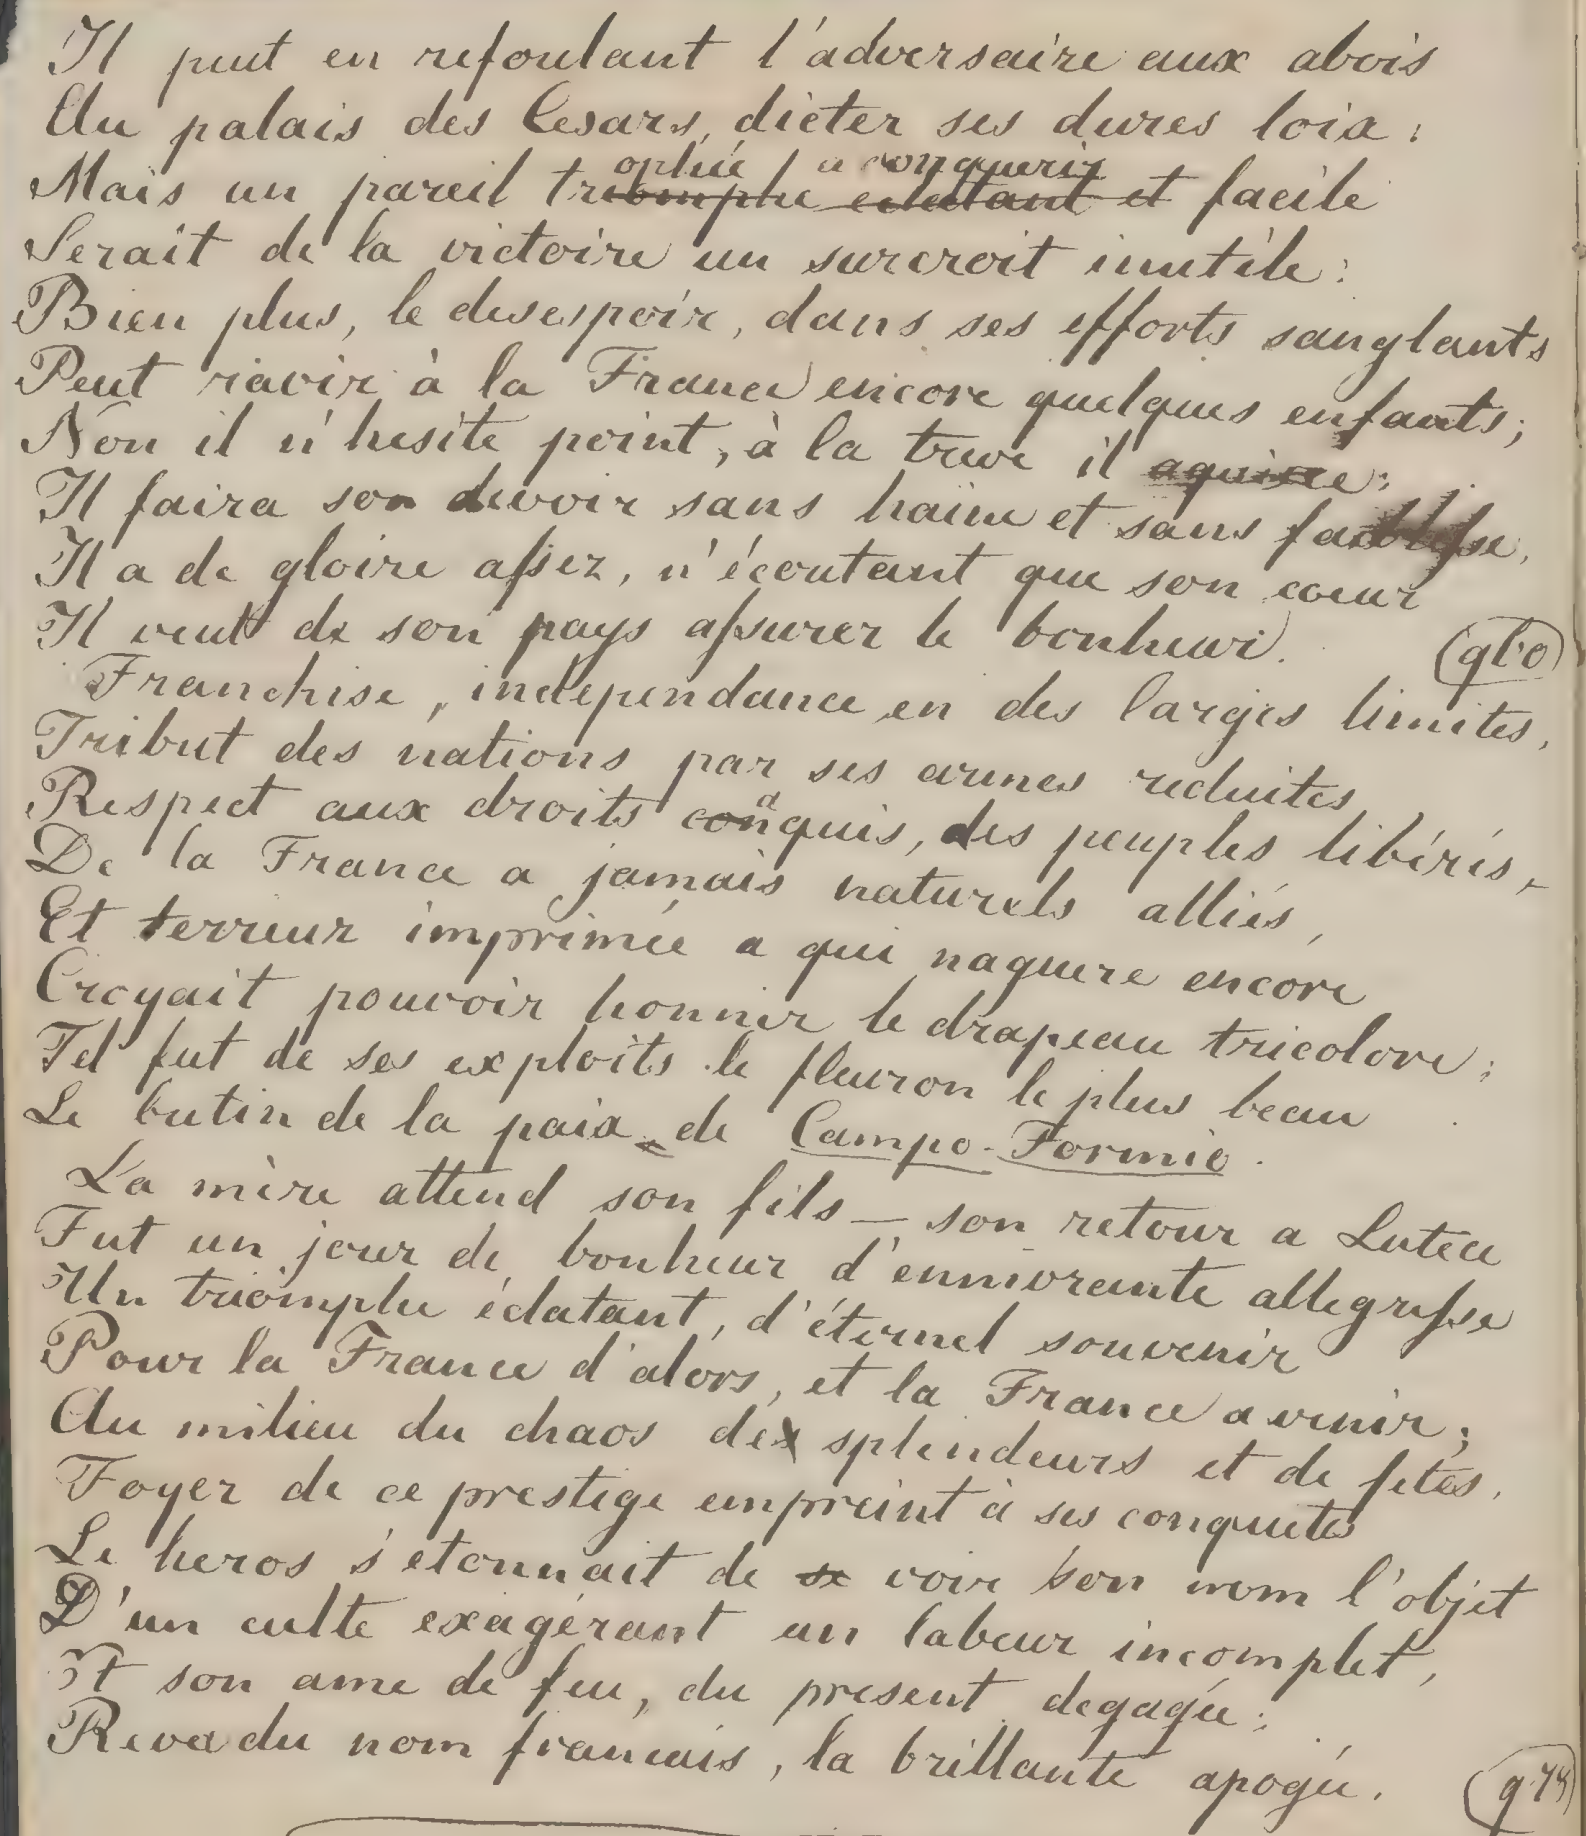 Il peut en refoulant l'adversaire aux abois
Au palais des Cesars, dicter ses dures loix :
Mais un pareil trophée a conquerir et facile
Serait de la victoire un surcroit inutile :
Bien plus, le desespoir, dans ses efforts sanglants
Peut ravir à la France encore quelques enfants ;
Non il n'hesite point, à la treve il
Il faira son devoir sans haine et sans faiblesse,
Il a de gloire assez, n'écoutant que son coeur
Il veut de son pays assurer le bonheur.
Franchise, independance en des larges limites,
Tribut des nations par ses armes reduites
Respect aux droits acquis, des peuples libérés,
De la France a jamais naturels alliés,
Et terreur imprimée a qui naguere encore
Croyait pouvoir honnir le drapeau tricolore ;
Tel fut de ses exploits le fleuron le plus beau
Le butin de la paix de Campo-Formio.
La mère attend son fils — son retour a Lutece
Fut un jour de bonheur d'ennivrante allegresse
Un triomphe éclatant, d'éternel souvenir
Pour la France d'alors, et la France a venir ;
Au milieu du chaos de splendeurs et de fetes,
Foyer de ce prestige empreint à ses conquetes
Le heros s'etonnait de voir son nom l'objet
D'un culte exagérant un labeur incomplet,
Et son ame de feu, du present degagée ;
Reva du nom francais, la brillante apogée.